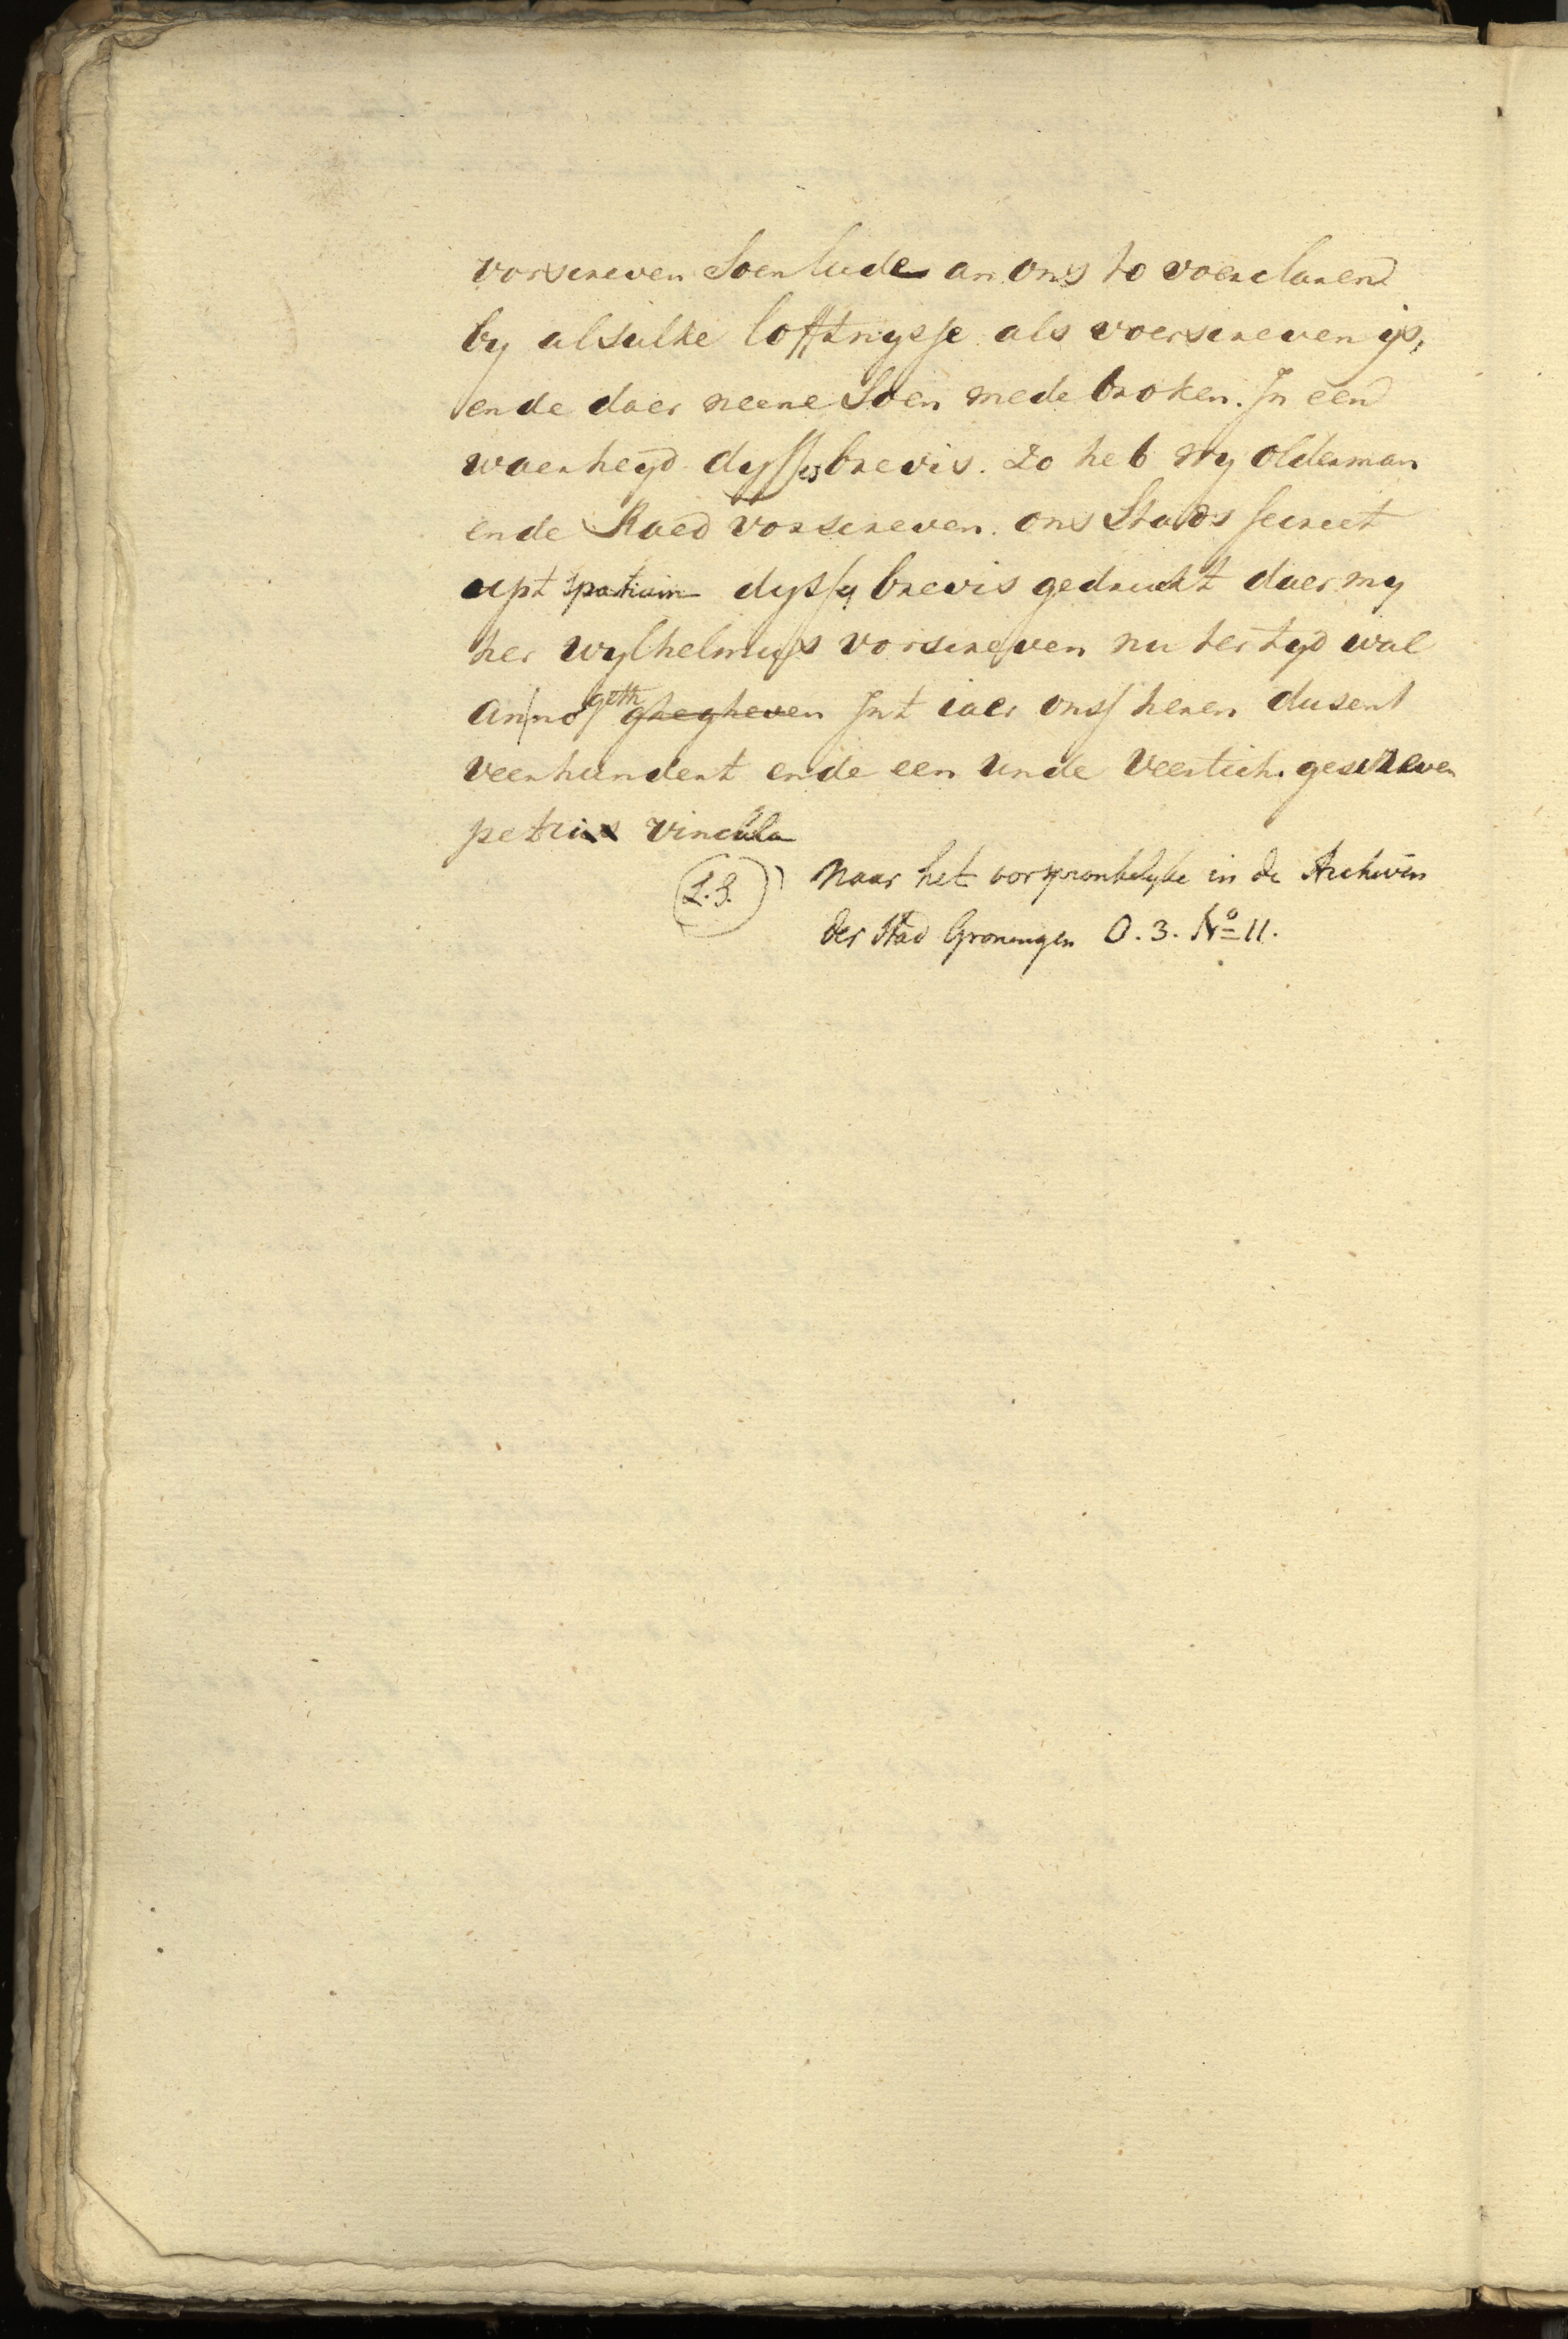 vorscreven Soenlude an ons to voerclaren
by alsulke lofftnysse als voerscreven ys,
ende daer neene Soen mede broken. In een
waerheyd dysses brevis. Zo heb wy olderman
ende Raed vorscreven. ons Stads secreet
upt spatium dysses brevis gedruckt daer my
her Wylhelmus vorscreven nu ter tyd wal
an no geth ghegheven Int iaer ons heren dusent
veerhundert ende een unde veertich. gescreven
petri vincula
L.S. Naar het oorspronkelyke in de Archiven
der Stad Groningen O. 3. No 11.